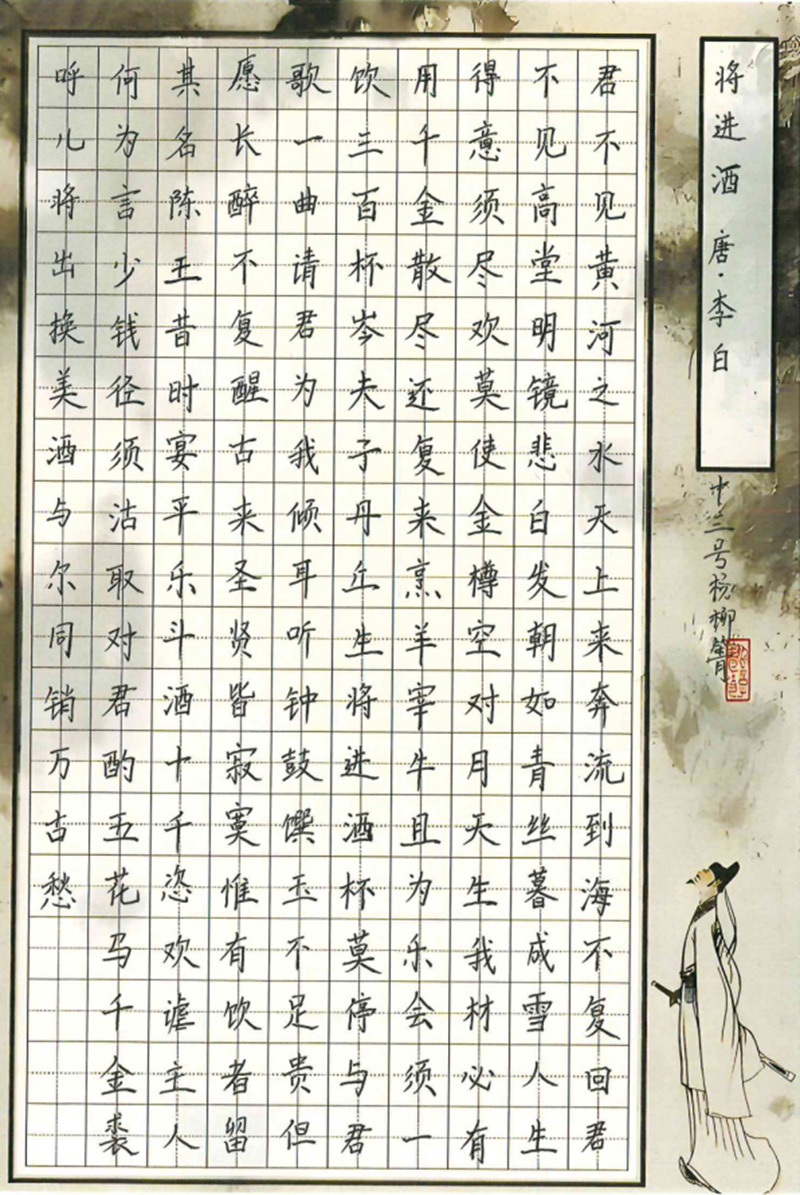 将进酒 唐·李白
十三号杨柳
君不见黄河之水天上来奔流到海不复回君
不见高堂明镜悲白发朝如青丝暮成雪人生
得意须尽欢莫使金樽空对月天生我材必有
用千金散尽还复来烹羊宰牛且为乐会须一
饮三百杯岑夫子丹丘生将进酒杯莫停与君
歌一曲请君为我倾耳听钟鼓馔玉不足贵但
愿长醉不复醒古来圣贤皆寂寞惟有饮者留
其名陈王昔时宴平乐斗酒十千恣欢谑主人
何为言少钱径须沽取对君酌五花马千金裘
呼儿将出换美酒与尔同销万古愁